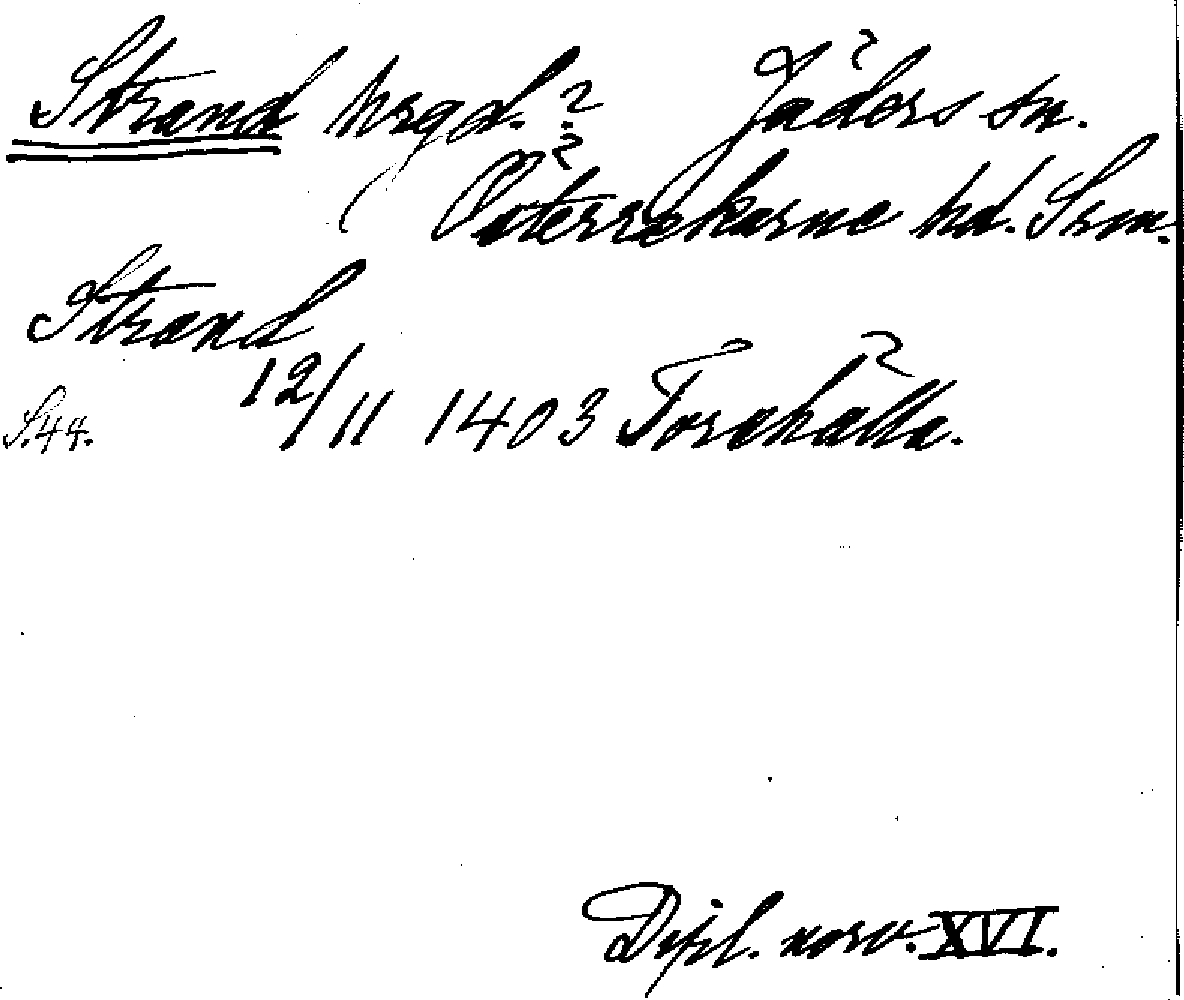 Strand hrgd.? Jäders sn.
Österrekarne hd. Srm.
Strand
S.44. 12/11 1403 Torshälla.
Dipl. norv. XVI.